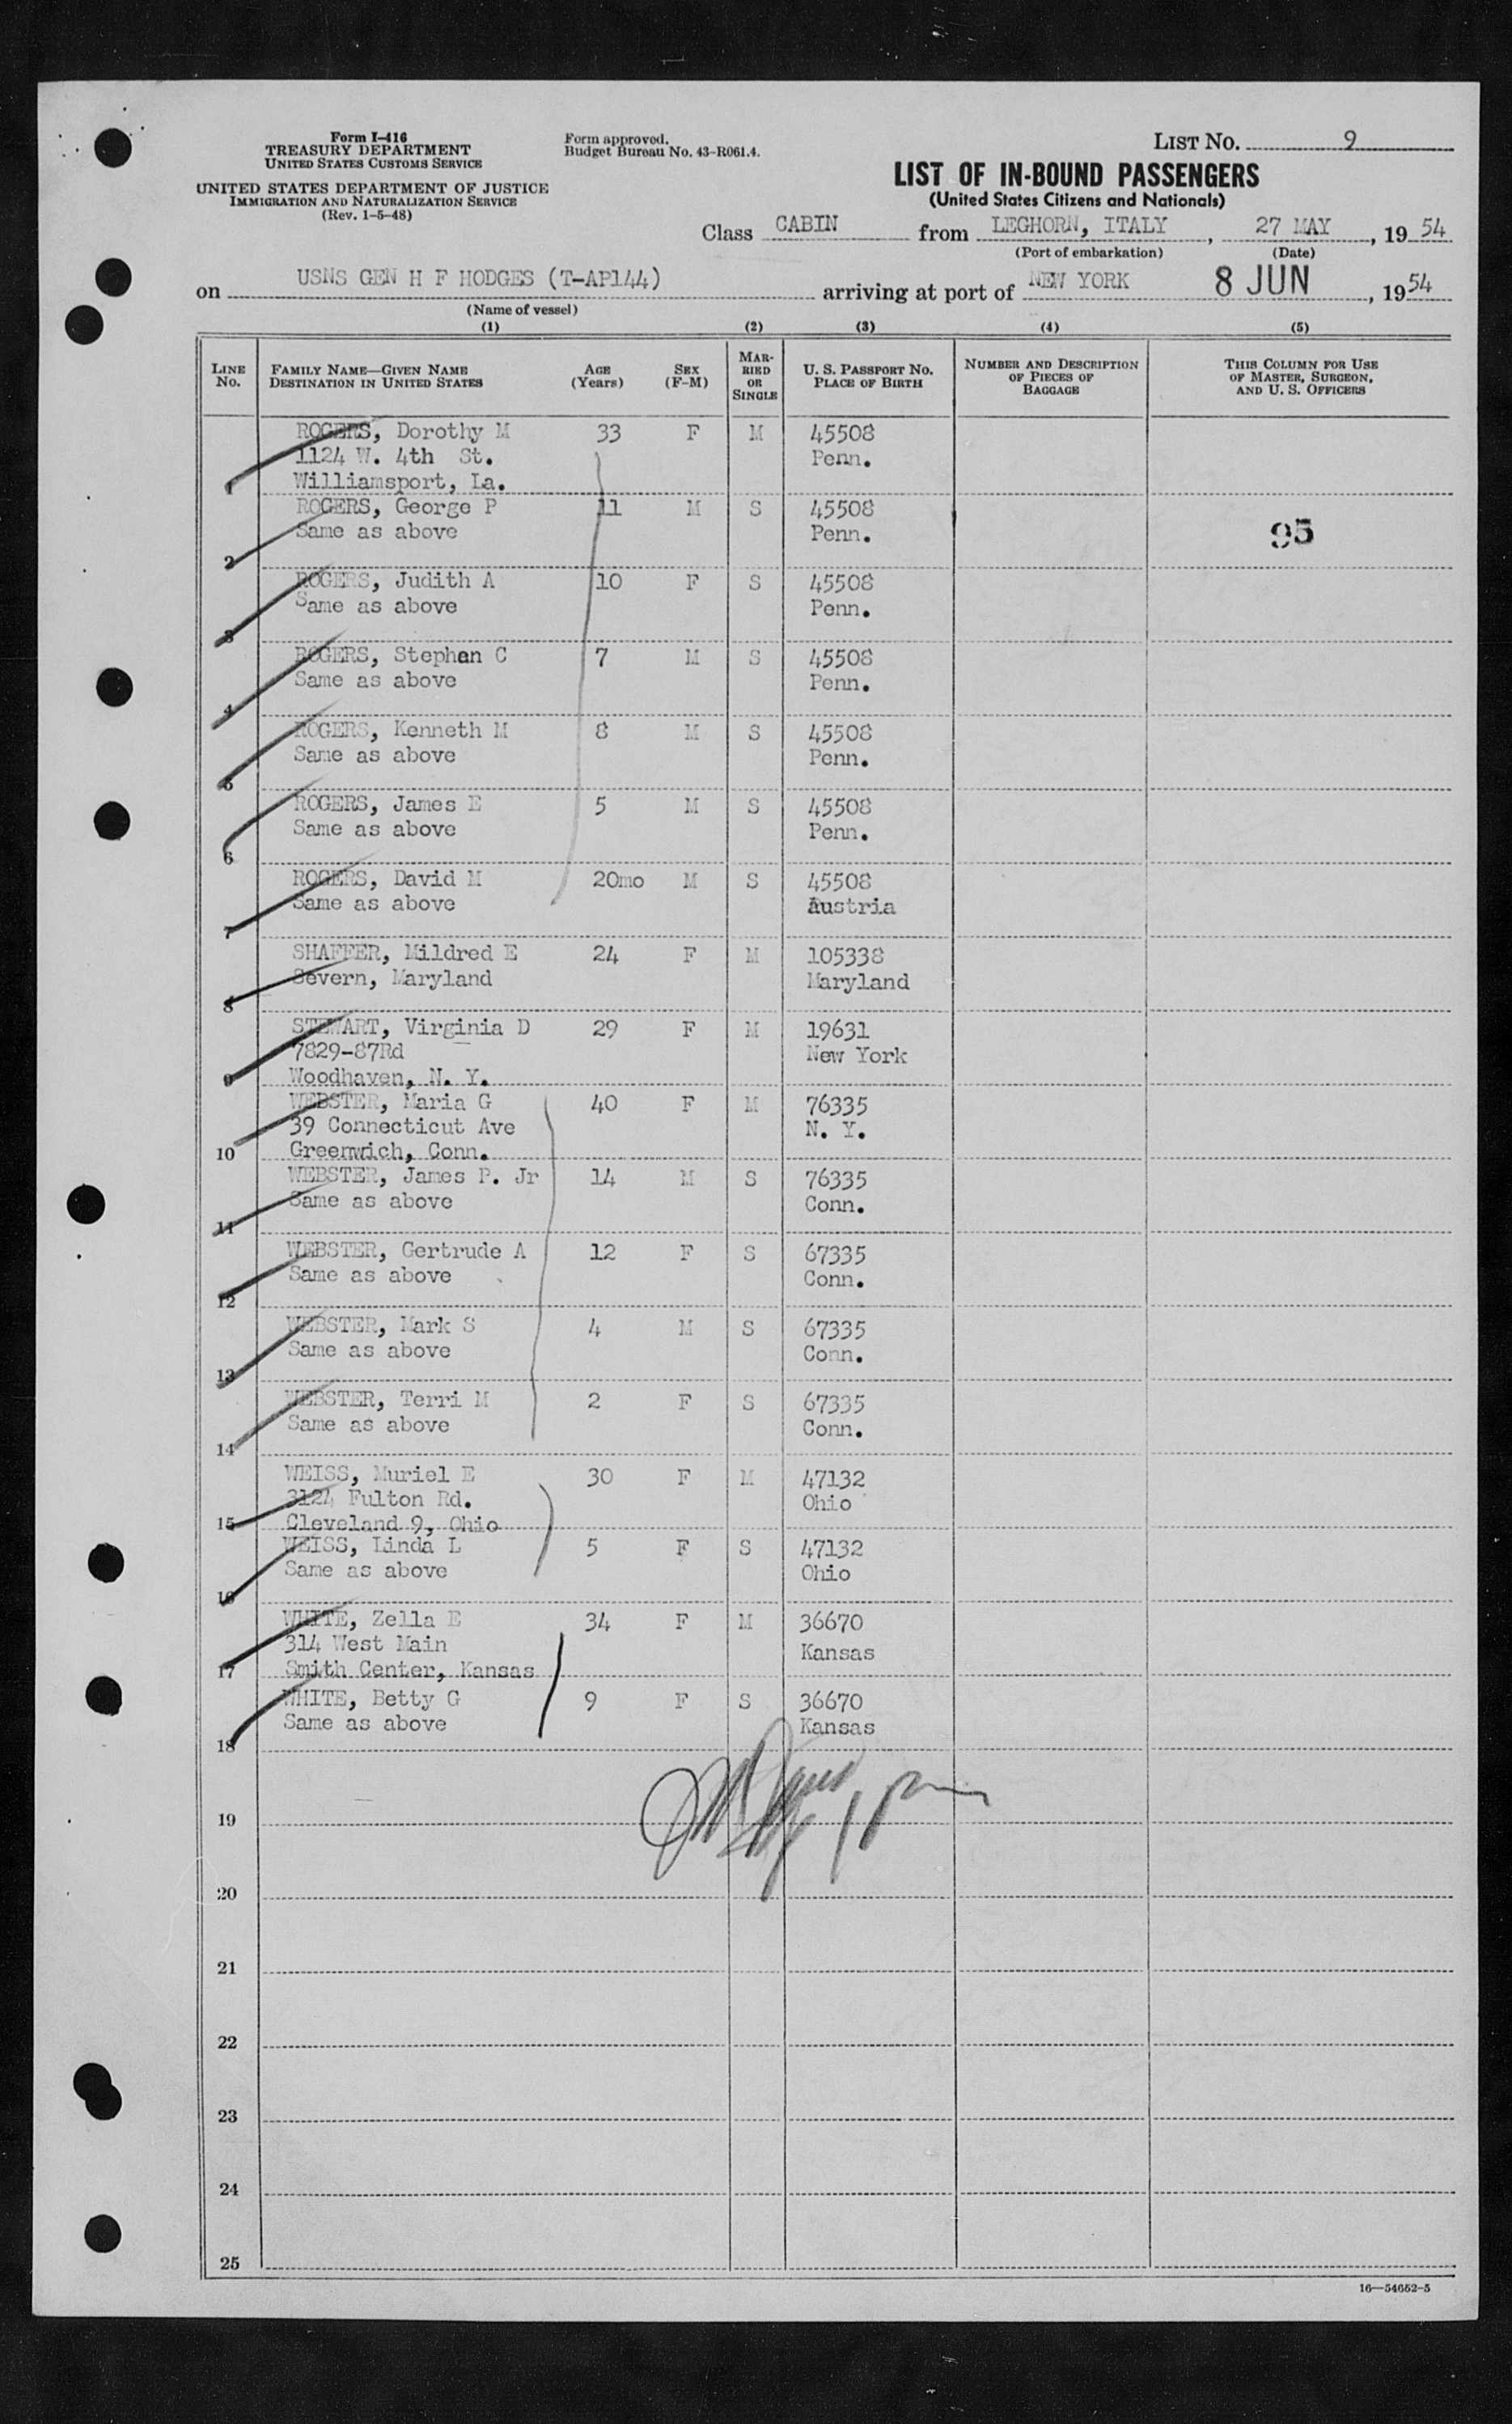 Form I-416
TREASURY DEPARTMENT
UNITED STATES CUSTOMS SERVICE
UNITED STATES DEPARTMENT OF JUSTICE
IMMIGRATION AND NATURALIZATION SERVICE
(Rev. 1-5-48)
Form approved.
Budget Bureau No. 43-R061.4.
LIST No. 9
LIST OF IN-BOUND PASSENGERS
(United States Citizens and Nationals)
Class CABIN from LEGHORN, ITALY, 27 MAY, 1954
(Port of embarkation) (Date)
on USNS GEN H F HODGES (T-AP144) arriving at port of NEW YORK 8 JUN, 1954
(Name of vessel)
(1) (2) (3) (4) (5)
LINE No. FAMILY NAME—GIVEN NAME DESTINATION IN UNITED STATES AGE (Years) SEX (F-M) MARRIED OR SINGLE U. S. PASSPORT No. PLACE OF BIRTH NUMBER AND DESCRIPTION OF PIECES OF BAGGAGE THIS COLUMN FOR USE OF MASTER, SURGEON, AND U. S. OFFICERS
ROGERS, Dorothy M 33 F M 45508
1124 W. 4th St. Penn.
1 Williamsport, La.
ROGERS, George P 11 M S 45508
Same as above Penn. 95
2
ROGERS, Judith A 10 F S 45508
Same as above Penn.
3
ROGERS, Stephen C 7 M S 45508
Same as above Penn.
4
ROGERS, Kenneth M 8 M S 45508
Same as above Penn.
5
ROGERS, James E 5 M S 45508
Same as above Penn.
6
ROGERS, David M 20mo M S 45508
Same as above Austria
7
SHAFFER, Mildred E 24 F M 105338
Severn, Maryland Maryland
8
STEWART, Virginia D 29 F M 19631
7829-87Rd New York
9 Woodhaven, N. Y.
WEBSTER, Maria G 40 F M 76335
39 Connecticut Ave N. Y.
10 Greenwich, Conn.
WEBSTER, James P. Jr 14 M S 76335
Same as above Conn.
11
WEBSTER, Gertrude A 12 F S 67335
Same as above Conn.
12
WEBSTER, Mark S 4 M S 67335
Same as above Conn.
13
WEBSTER, Terri M 2 F S 67335
Same as above Conn.
14
WEISS, Muriel E 30 F M 47132
3124 Fulton Rd. Ohio
15 Cleveland 9, Ohio
WEISS, Linda L 5 F S 47132
Same as above Ohio
16
WHITE, Zella E 34 F M 36670
314 West Main Kansas
17 Smith Center, Kansas
WHITE, Betty G 9 F S 36670
Same as above Kansas
18
19
20
21
22
23
24
25
16—54652-5